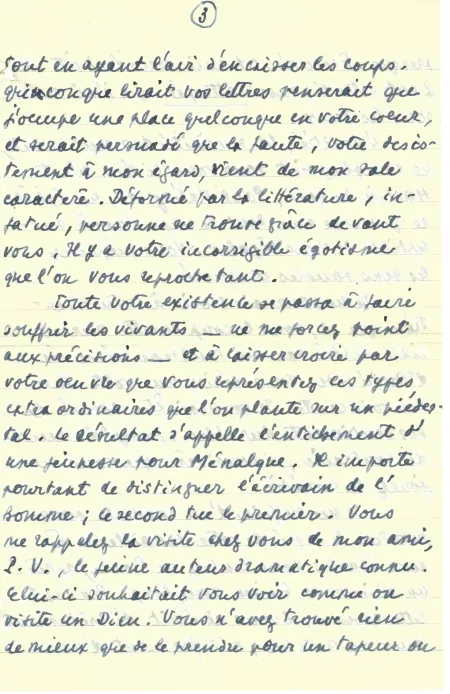 3
tout en ayant l'air d'encaisser les coups.
Quiconque lirait vos lettres penserait que
j'occupe une place quelconque en votre coeur,
et serait persuadé que la faute, votre
à mon égard, vient de mon sale
caractère. Déformé par la littérature, in-
fatué, personne ne trouve grâce devant
vous. Il y a votre incorrigible égotisme
que l'on vous reproche tant.
Toute votre existence se passa à faire
souffrir les vivants — ne me forcez point
aux précisions — et à laisser croire par
votre oeuvre que vous représentez ces types
extraordinaires que l'on plante sur un piédes-
tal. Le résultat s'appelle l'entichement d'
une jeunesse pour Ménalque. Il importe
pourtant de distinguer l'écrivain de l'
homme ; le second tue le premier. Vous
me rappelez la visite chez vous de mon ami,
P. V., le jeune auteur dramatique connu.
Celui-ci souhaitait vous voir comme on
visite un Dieu. Vous n'avez trouvé rien
de mieux que de le prendre pour un tapeur ou